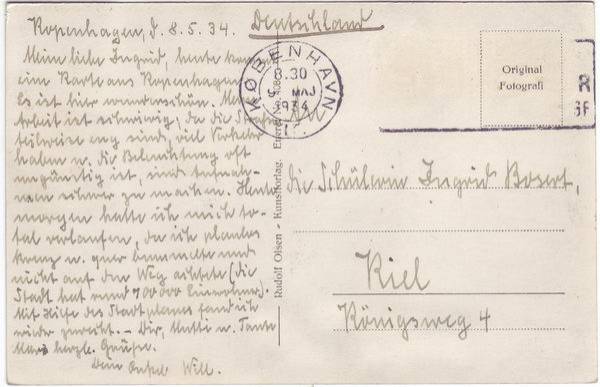 Kopenhagen, d. 8.5.34.
Deutschland
Mein liebe Ingrid, heute
eine Karte aus Kopenhagen
Es ist hier wunderschön.
Arbeit ist schwierig, da die
teilweise eng sind, viel Verkehr
haben u. die Beleuchtung oft
ungünstig ist, sind
schwer zu machen. Heute
morgen hatte ich mich to-
tal verlaufen, da ich planlos
kreuz u. quer bummelte und
nicht auf den Weg achtete (die
Stadt hat rund 700 000 Einwohner).
Mit Hilfe des Stadtplanes fand ich
wieder zurecht. - Dir, Mutti u. Tante
herzl. Grüße.
Dein Onkel Will.
KØBENHAVN
8.30
MAJ
1934
Original
Fotografi
R
Rudolf Olsen - Kunstforlag.
An
die Schülerin Ingrid
Kiel
Königsweg 4